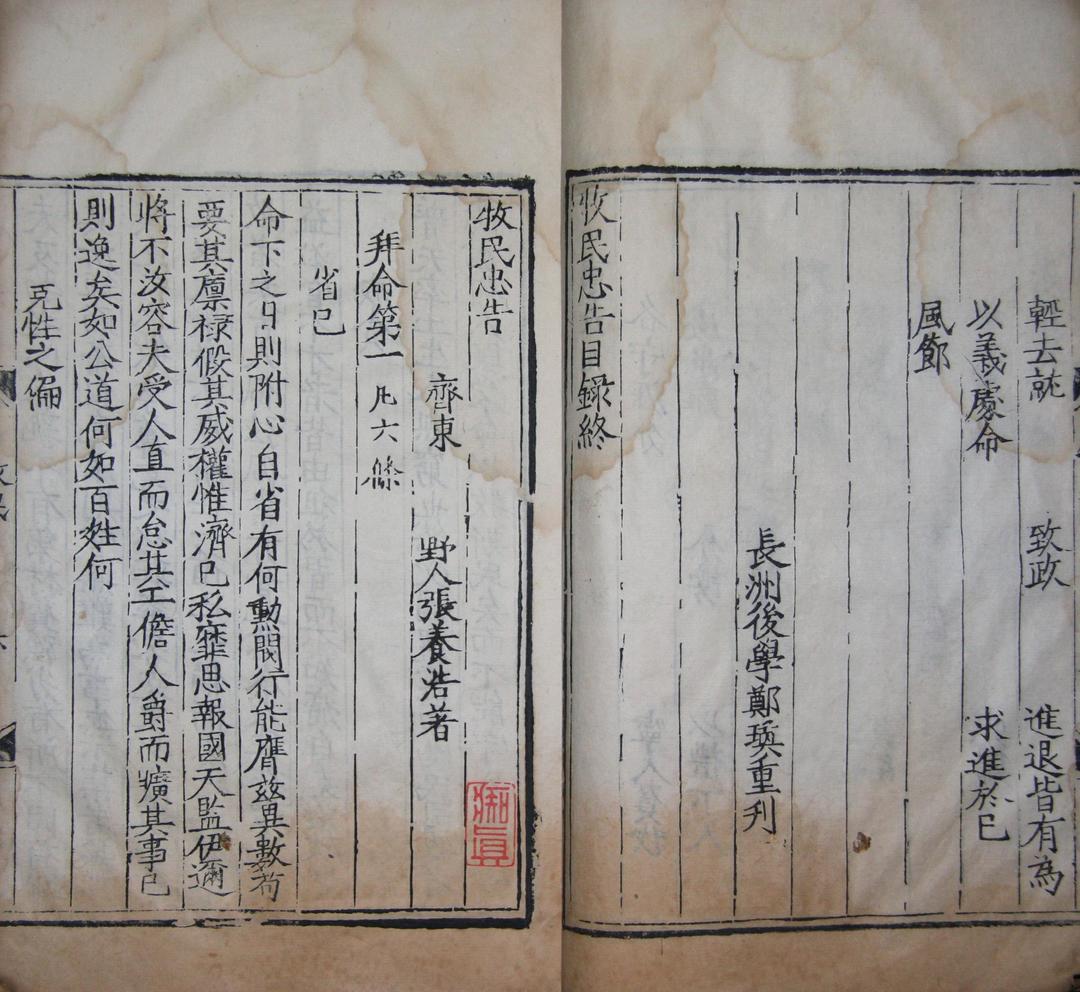 輕去就 致政 進退皆有為
以義處命 求進於已
風節
長洲後學鄭璵重刋
牧民忠告目録終
牧民忠告
齊東 野人張養浩著
拜命第一 凡六條
省已
命下之日則附心自省有何勲閥行能膺兹異數苟
要其廪禄假其威權惟濟已私靡思報國天監伊邇
將不汝容夫受人直而怠其工儋人爵而曠其事已
則逸矣如公道何如百姓何
克性之偏